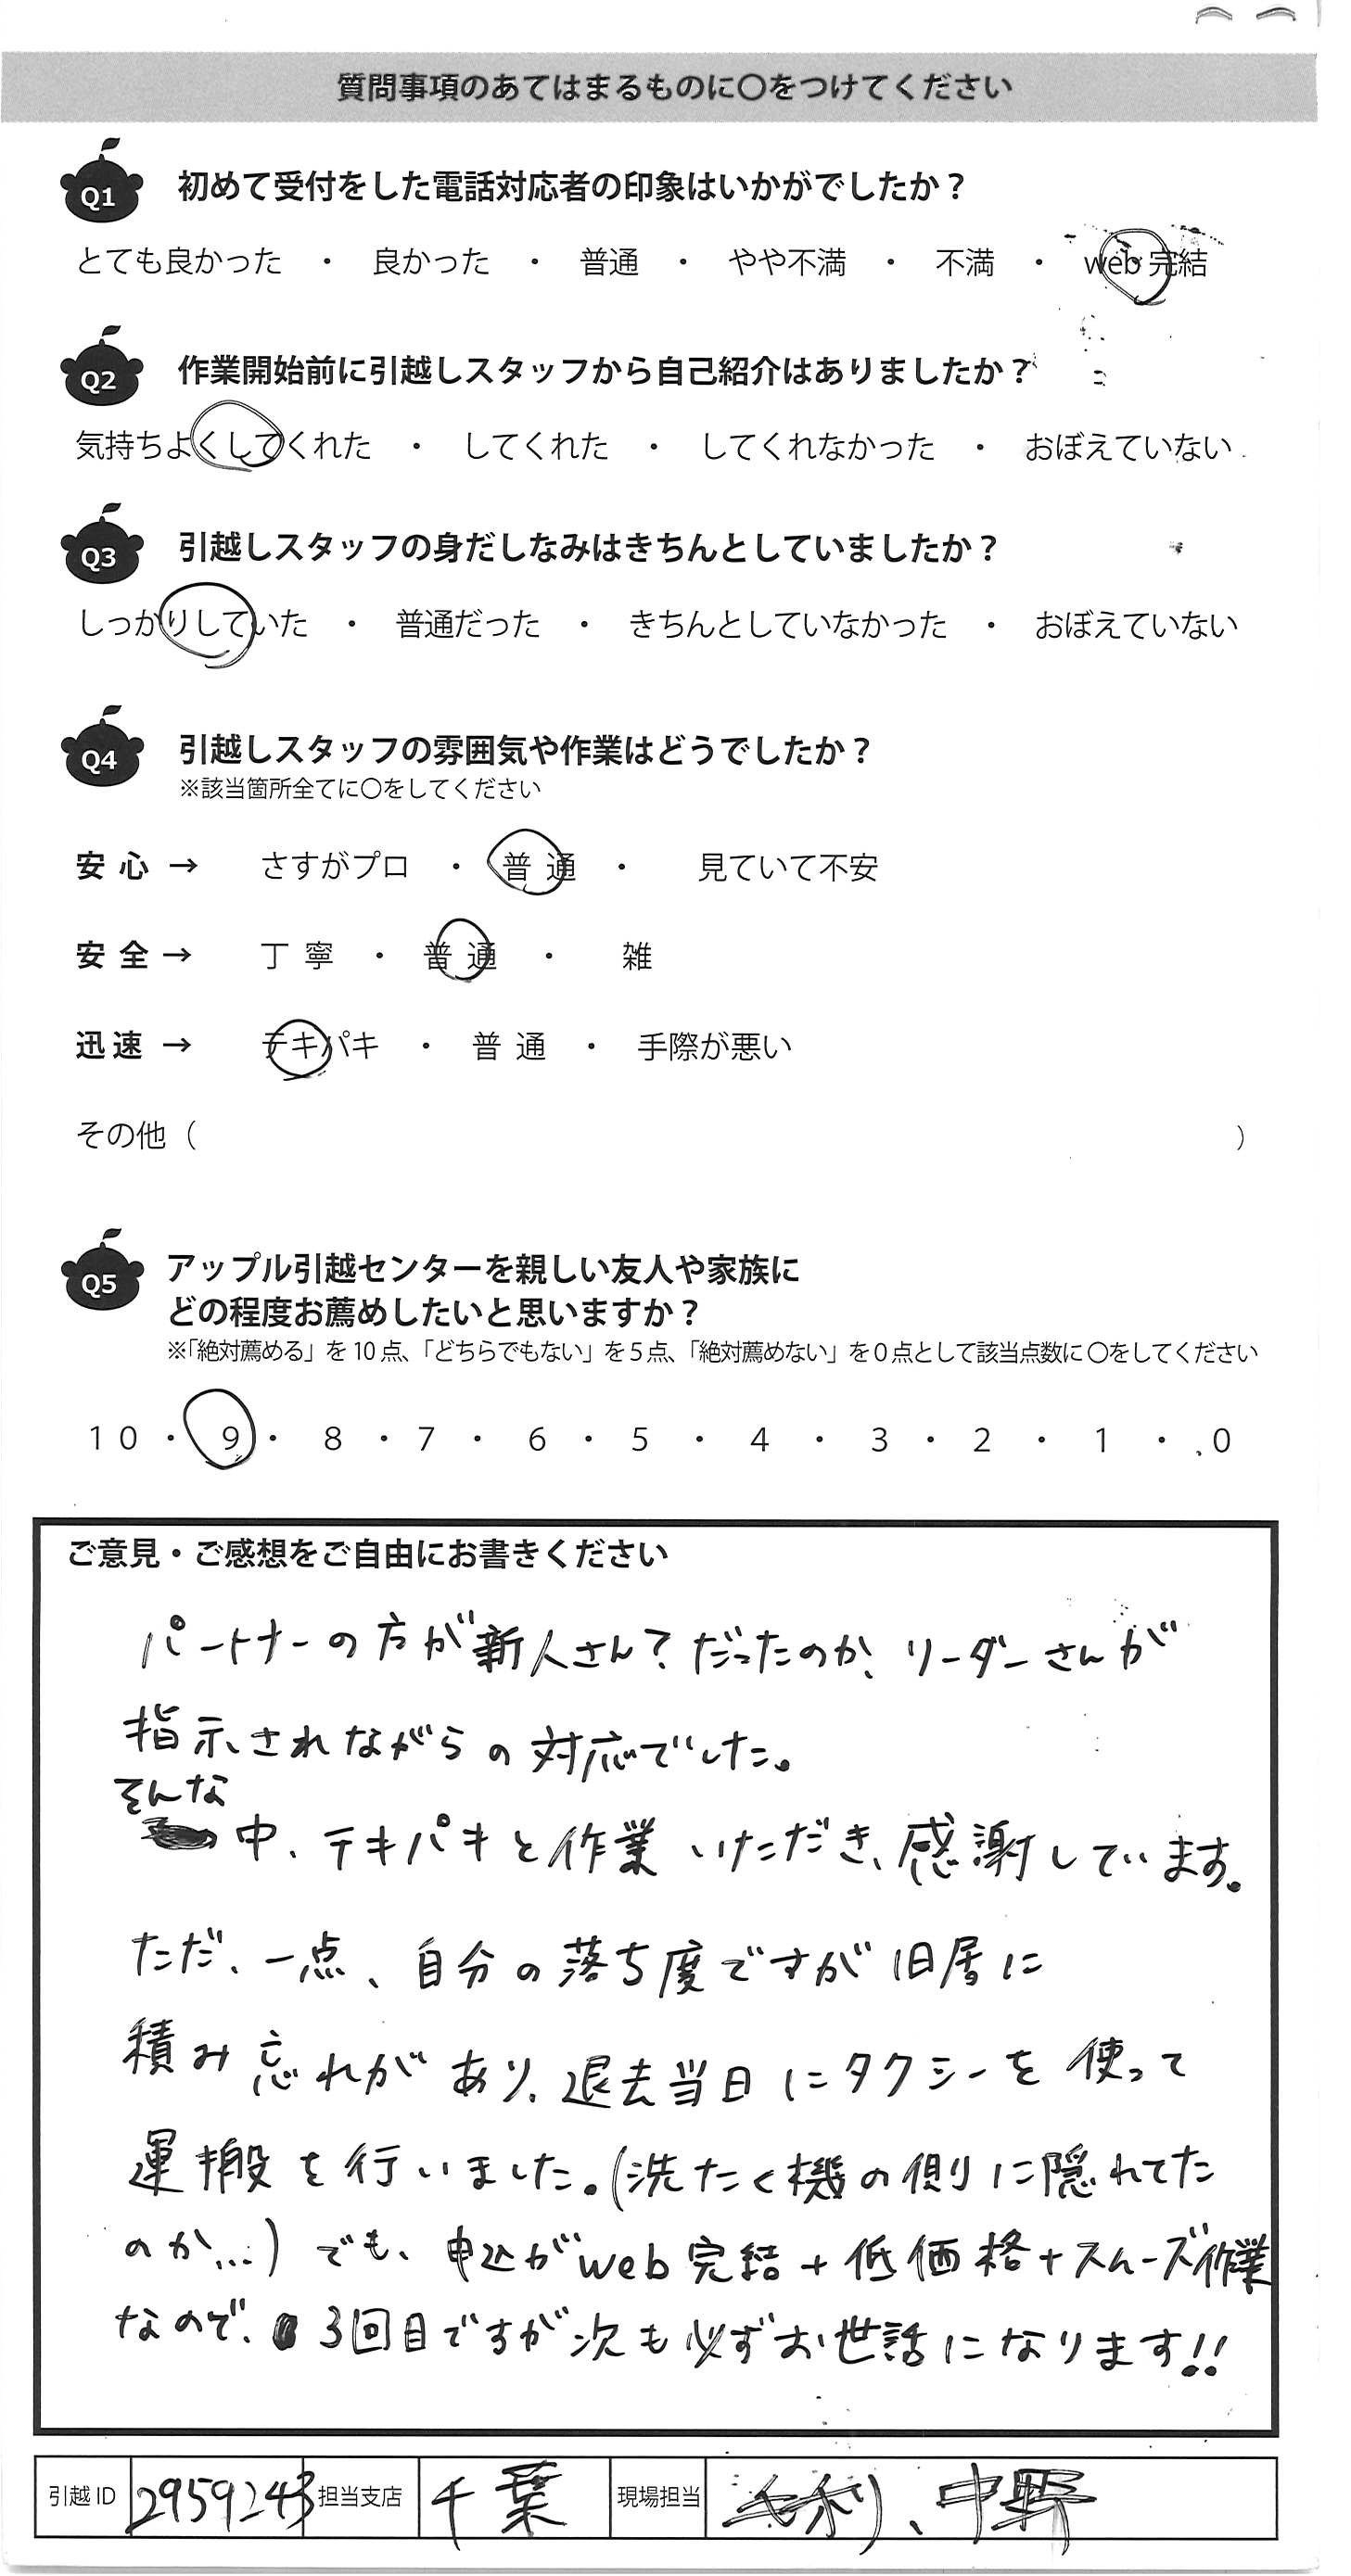 質問事項のあてはまるものに〇をつけてください
Q1 初めて受付をした電話対応者の印象はいかがでしたか？
とても良かった ・ 良かった ・ 普通 ・ やや不満 ・ 不満 ・ web 完結
Q2 作業開始前に引越しスタッフから自己紹介はありましたか？
気持ちよくしてくれた ・ してくれた ・ してくれなかった ・ おぼえていない
Q3 引越しスタッフの身だしなみはきちんとしていましたか？
しっかりしていた ・ 普通だった ・ きちんとしていなかった ・ おぼえていない
Q4 引越しスタッフの雰囲気や作業はどうでしたか？
※該当箇所全てに〇をしてください
安心 → さすがプロ ・ 普通 ・ 見ていて不安
安全 → 丁寧 ・ 普通 ・ 雑
迅速 → テキパキ ・ 普通 ・ 手際が悪い
その他（ ）
Q5 アップル引越センターを親しい友人や家族に
どの程度お薦めしたいと思いますか？
※「絶対薦める」を10点、「どちらでもない」を5点、「絶対薦めない」を0点として該当点数に〇をしてください
10 ・ 9 ・ 8 ・ 7 ・ 6 ・ 5 ・ 4 ・ 3 ・ 2 ・ 1 ・ 0
ご意見・ご感想をご自由にお書きください
パートナーの方が新人さん？だったのか、リーダーさんが
指示されながらの対応でした。
そんな
中、テキパキと作業いただき、感謝しています。
ただ、一点、自分の落ち度ですが旧居に
積み忘れがあり、退去当日にタクシーを使って
運搬を行いました。(洗たく機の側に隠れてた
のか…) でも、申込がweb完結+低価格+スムーズ作業
なので、3回目ですが次も必ずお世話になります!!
引越ID 2959243 担当支店 千葉 現場担当 毛利、中野